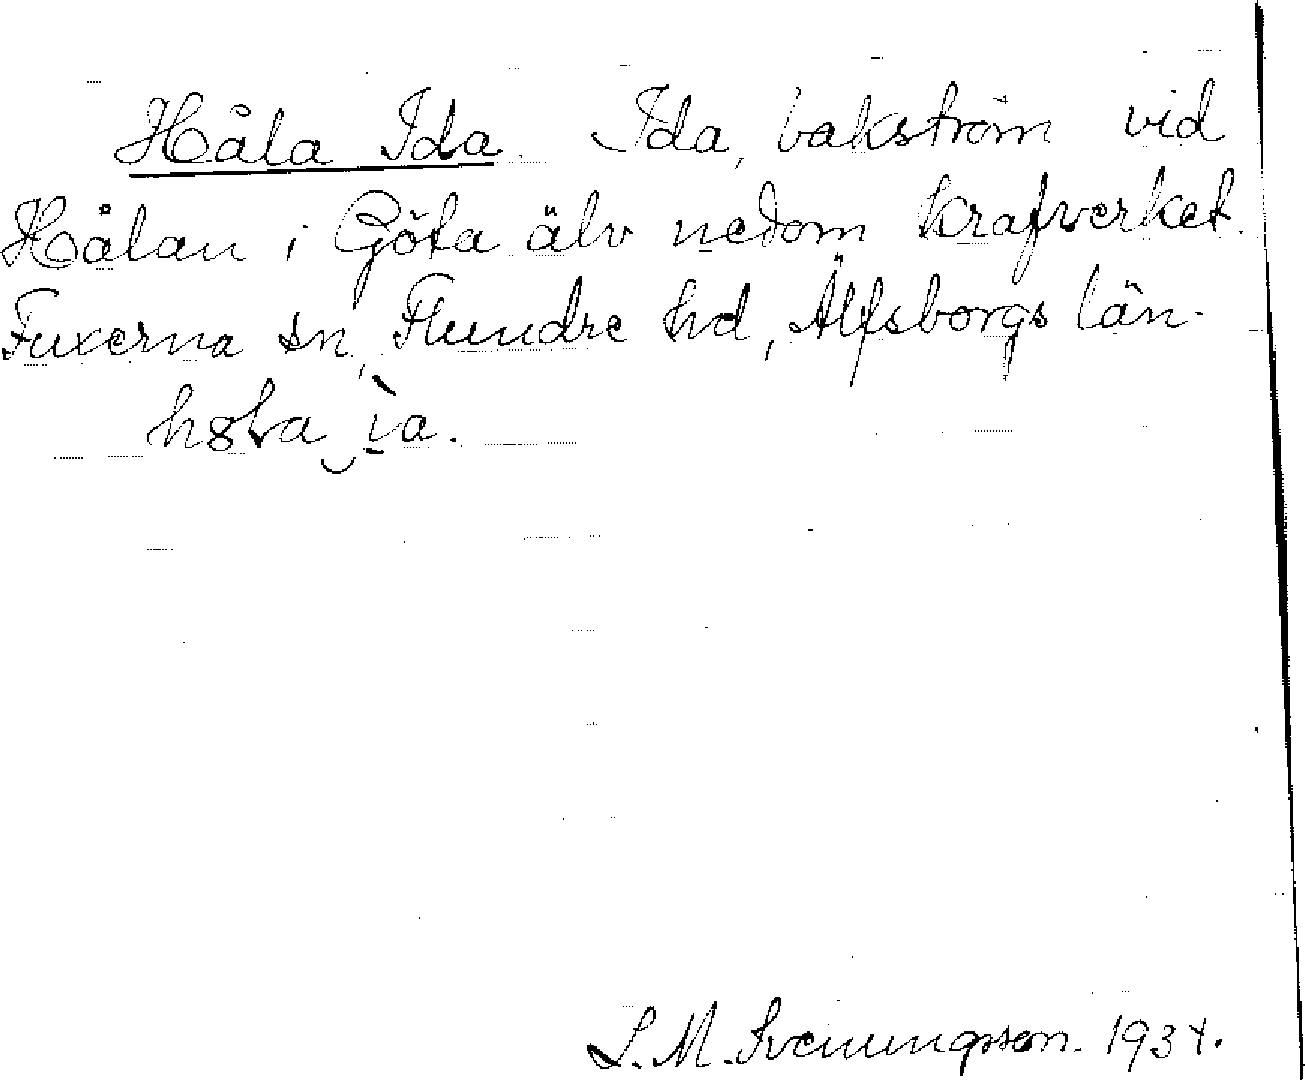 Håla Ida. Ida, bakström vid
Hålan i Göta älv nedom krafverket.
Fuxerna sn, Flundre hd, Älfsborgs län.
S. M. Svenungsson. 1934.